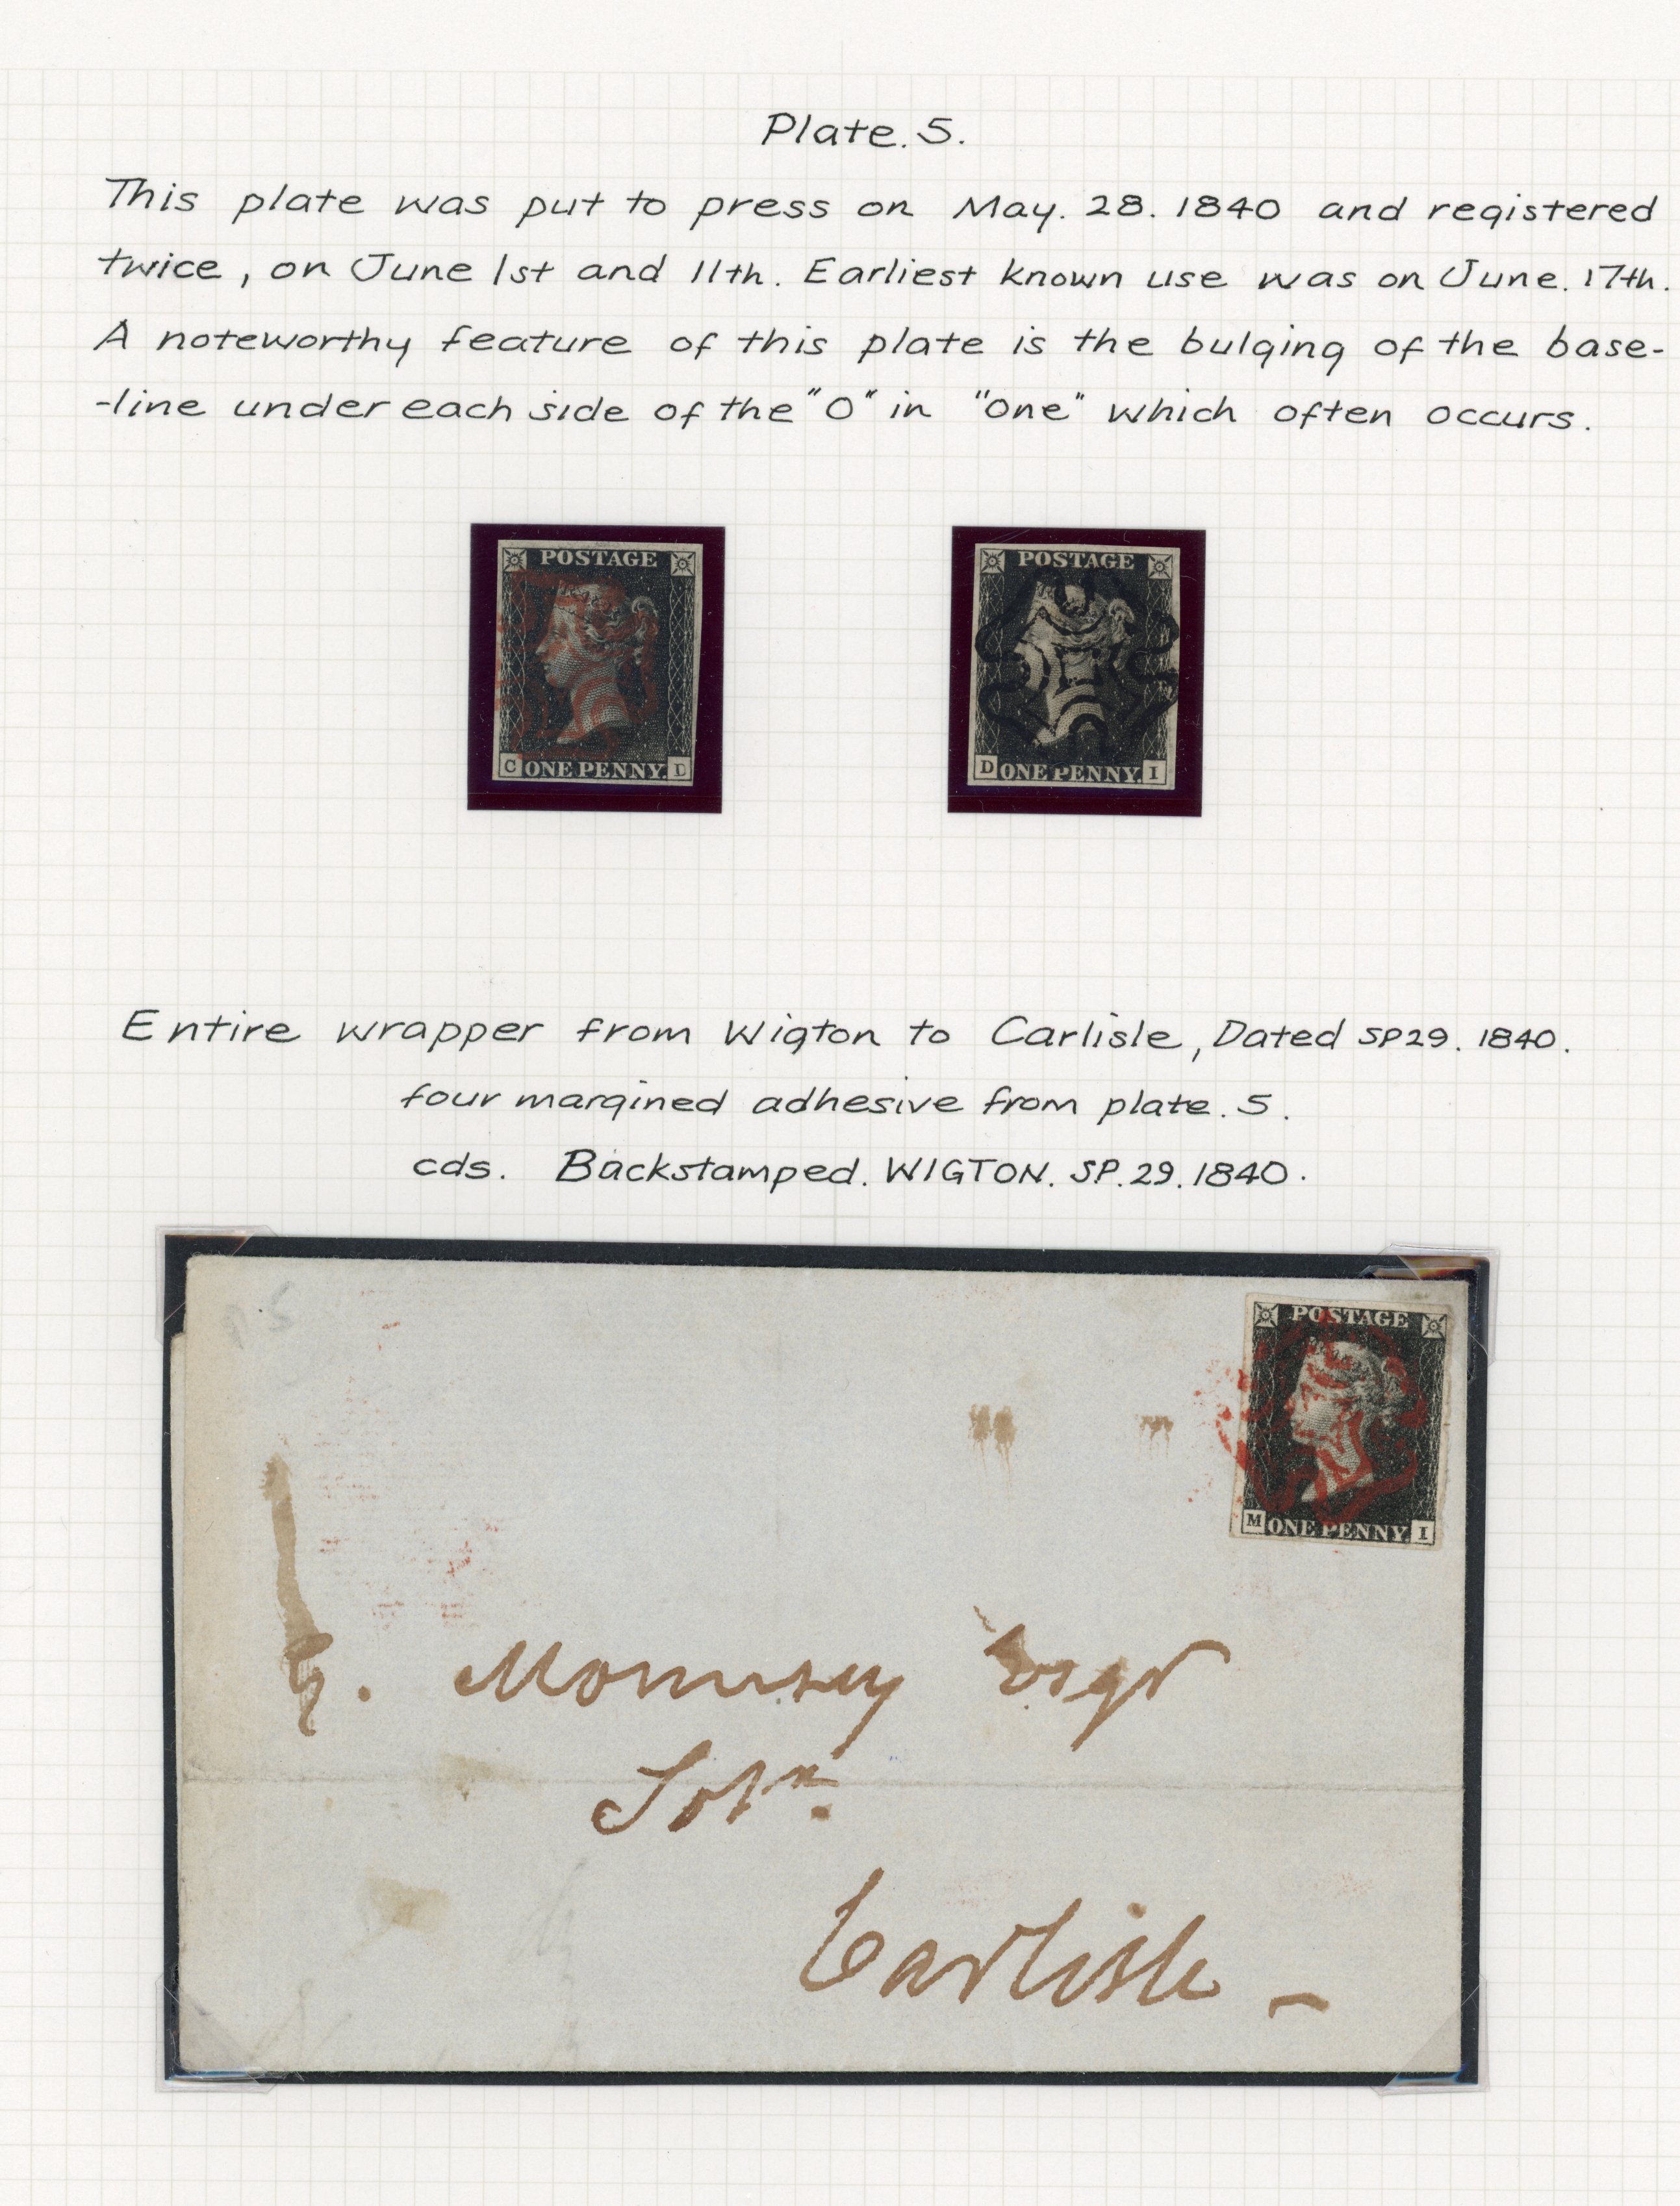 Plate. 5.
This plate was put to press on May. 28. 1840 and registered
twice, on June 1st and 11th. Earliest known use was on June. 17th.
A noteworthy feature of this plate is the bulging of the base-
-line under each side of the "O" in "One" which often occurs.
POSTAGE
C ONE PENNY. L
POSTAGE
D ONE PENNY. I
Entire wrapper from Wigton to Carlisle, Dated SP29. 1840.
four margined adhesive from plate. 5.
cds. Backstamped. WIGTON. SP. 29. 1840.
P.5
POSTAGE
M ONE PENNY. I
G. Mounsey Esqr
Solr.
Carlisle –